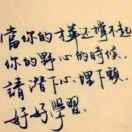 當你的才華还撐不起
你的野心的時候，
請潛下心，埋下頭，
好好學習。